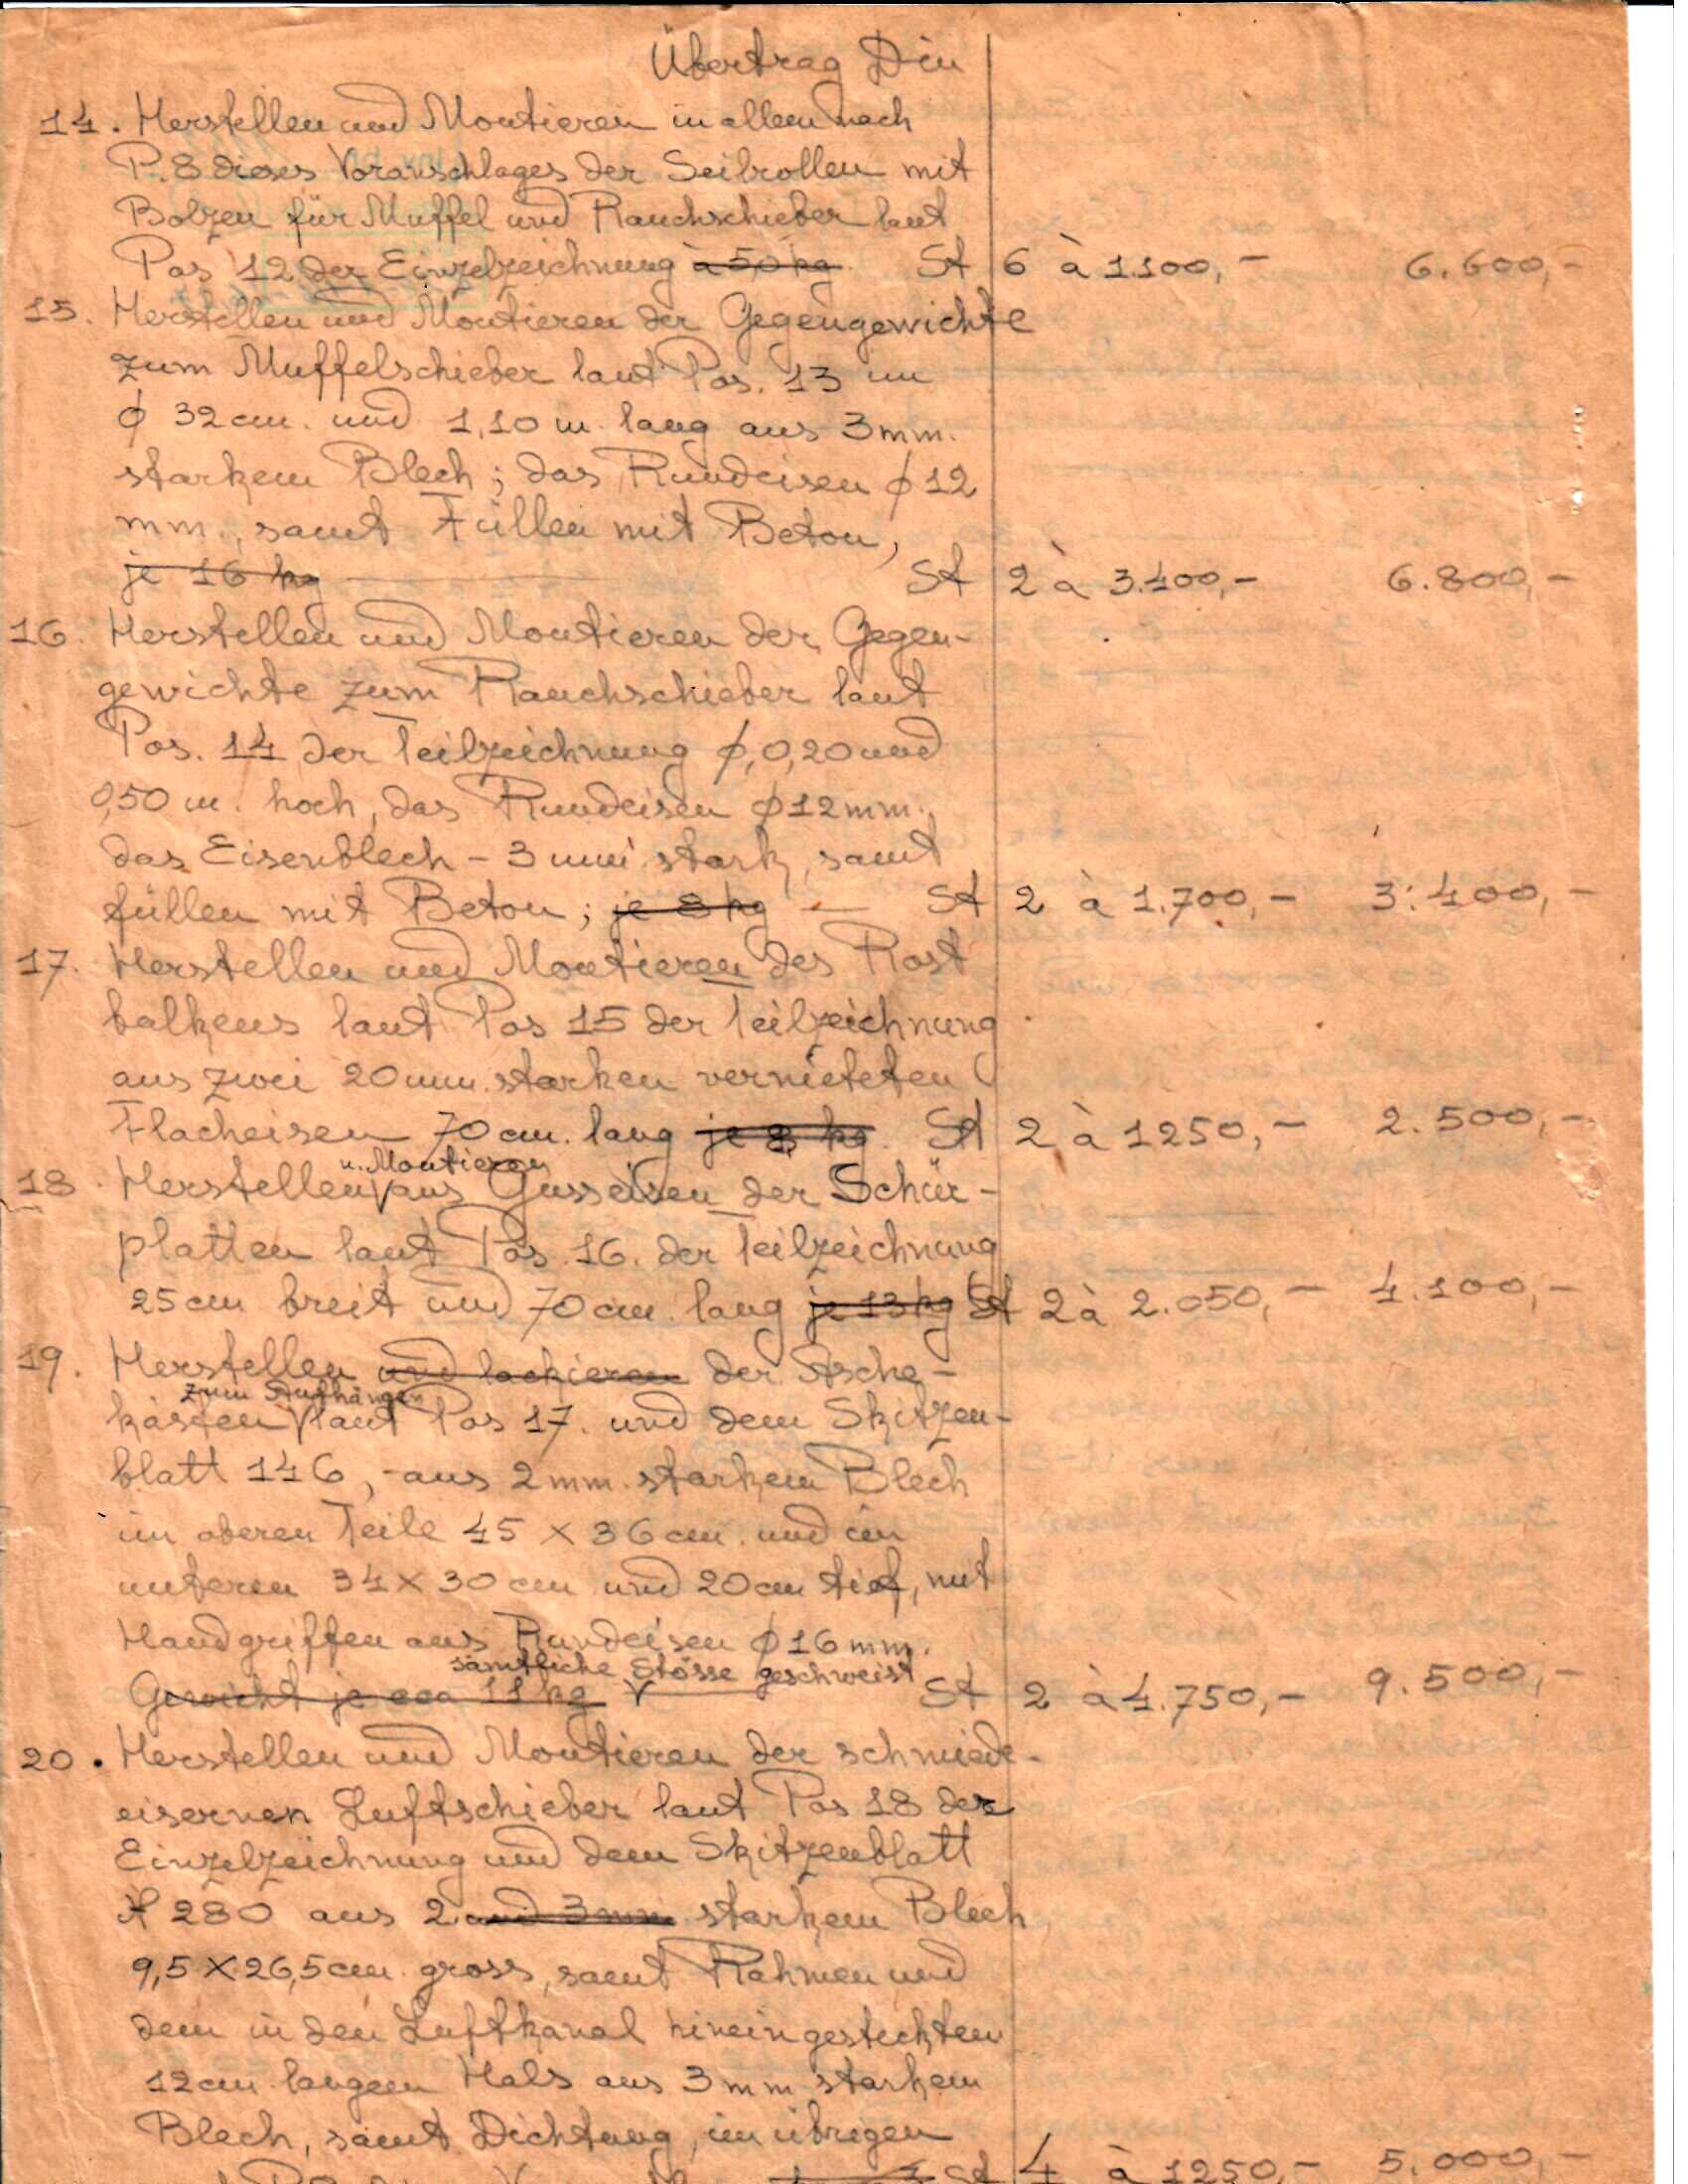 Übertrag Din
14. Herstellen und Montieren in allem nach
P. 8 dieses Voranschlages der Seilrollen mit
Bolzen für Muffel und Rauchschieber laut
Pos 12 der Einzelzeichnung à 5,0 kg St 6 à 1100,- 6.600,-
15. Herstellen und Montieren der Gegengewichte
zum Muffelschieber laut Pos. 13 im
ϕ 32 cm. und 1,10 m. lang aus 3 mm.
starkem Blech; das Rundeisen ϕ 12
mm., samt Füllen mit Beton,
je 16 kg St 2 à 3.400,- 6.800,-
16. Herstellen und Montieren der Gegen-
gewichte zum Rauchschieber laut
Pos. 14 der Teilzeichnung ϕ 0,20 und
0,50 m. hoch, das Rundeisen ϕ 12 mm.,
das Eisenblech - 3 mm stark, samt
füllen mit Beton; je 8 kg St 2 à 1.700,- 3.400,-
17. Herstellen und Montieren des Rost
balkens laut Pos 15 der Teilzeichnung
aus zwei 20 mm. starken vernieteten
Flacheisen 70 cm. lang je 8 kg St 2 à 1250,- 2.500,-
u. Montieren
18. Herstellen aus Gusseisen der Schür-
platten laut Pos. 16. der Teilzeichnung
25 cm breit und 70 cm. lang je 13 kg St 2 à 2.050,- 4.100,-
19. Herstellen und lackieren der Asche-
zum Aufhängen
kästen laut Pos 17. und dem Skitzen-
blatt 146, - aus 2 mm. starkem Blech
im oberen Teile 45 × 36 cm. und im
unteren 34 × 30 cm und 20 cm tief, mit
Handgriffen aus Rundeisen ϕ 16 mm.
sämtliche Stösse geschweist
Gewicht je cca 11 kg St 2 à 4.750,- 9.500,-
20. Herstellen und Montieren der schmiede-
eisernen Luftschieber laut Pos 18 der
Einzelzeichnung und dem Skitzenblatt
280 aus 2 und 3 mm starkem Blech
9,5 × 26,5 cm. gross, samt Rahmen und
dem in den Luftkanal hineingesteckten
12 cm langem Hals aus 3 mm starkem
Blech, samt Dichtung, im übrigen
St 4 à 1250,- 5.000,-